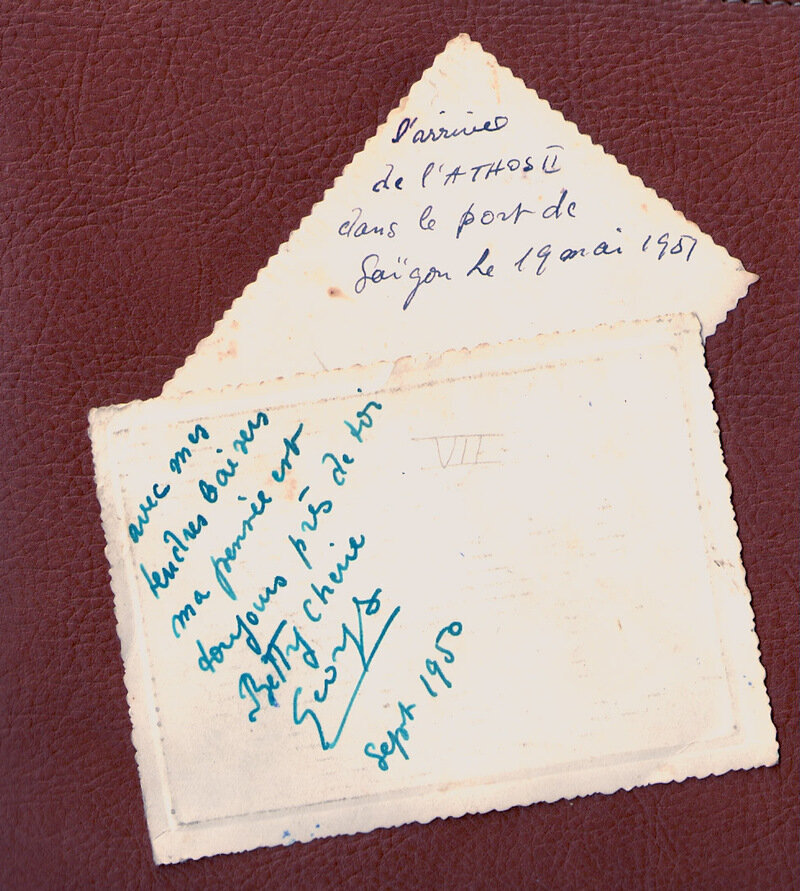 l'arrivée
de l'ATHOS II
dans le port de
Saïgon le 19 mai 1951
avec mes
tendres baisers
ma pensée est
toujours près de toi
Betty Chérie
Georges
Sept 1950
VII